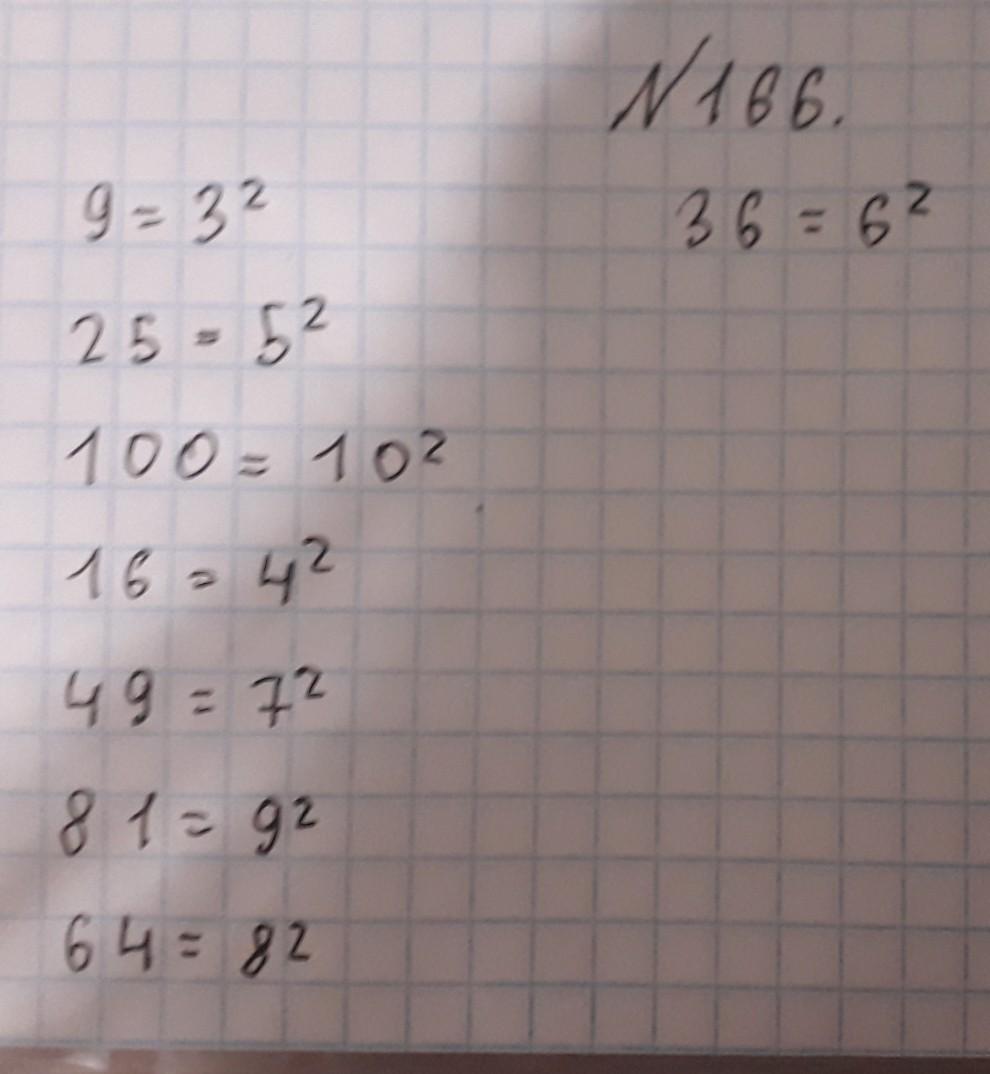 N166.
9 = 3²
36 = 6²
25 = 5²
100 = 10²
16 = 4²
49 = 7²
81 = 9²
64 = 8²